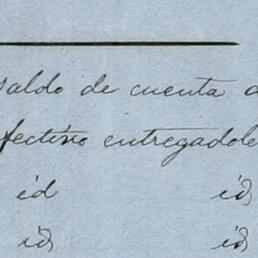 saldo de cuenta a
efectivo entregadole
id id
id id